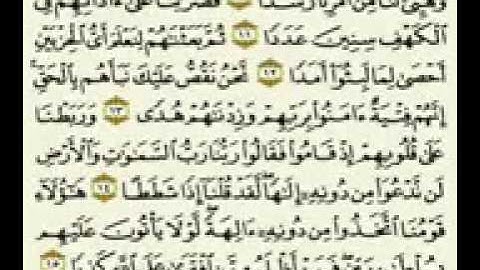 وَهَيِّئْ لَنَا مِنْ أَمْرِنَا رَشَدًا ١٠ فَضَرَبْنَا عَلَىٰ ءَاذَانِهِمْ فِي
ٱلْكَهْفِ سِنِينَ عَدَدًا ١١ ثُمَّ بَعَثْنَٰهُمْ لِنَعْلَمَ أَىُّ ٱلْحِزْبَيْنِ
أَحْصَىٰ لِمَا لَبِثُوٓا۟ أَمَدًا ١٢ نَّحْنُ نَقُصُّ عَلَيْكَ نَبَأَهُم بِٱلْحَقِّ ۚ
إِنَّهُمْ فِتْيَةٌ ءَامَنُوا۟ بِرَبِّهِمْ وَزِدْنَٰهُمْ هُدًى ١٣ وَرَبَطْنَا
عَلَىٰ قُلُوبِهِمْ إِذْ قَامُوا۟ فَقَالُوا۟ رَبُّنَا رَبُّ ٱلسَّمَٰوَٰتِ وَٱلْأَرْضِ
لَن نَّدْعُوَا۟ مِن دُونِهِۦٓ إِلَٰهًا ۖ لَّقَدْ قُلْنَآ إِذًا شَطَطًا ١٤ هَٰٓؤُلَآءِ
قَوْمُنَا ٱتَّخَذُوا۟ مِن دُونِهِۦٓ ءَالِهَةً ۖ لَّوْلَا يَأْتُونَ عَلَيْهِم
١٥